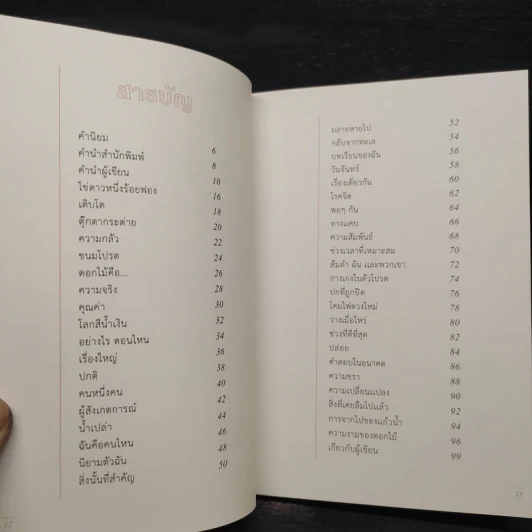 สารบัญ
คำนิยม 6
คำนำสำนักพิมพ์ 8
คำนำผู้เขียน 10
ไข่ดาวหนึ่งร้อยฟอง 16
เติบโต 18
ตุ๊กตากระต่าย 20
ความกลัว 22
ขนมโปรด 24
ดอกไม้คือ... 26
ความจริง 28
คุณค่า 30
โลกสีน้ำเงิน 32
อย่างไร ตอนไหน 34
เรื่องใหญ่ 36
ปกติ 38
คนหนึ่งคน 40
ผู้สังเกตการณ์ 42
น้ำเปล่า 44
ฉันคือคนไหน 46
นิยามตัวฉัน 48
สิ่งนั้นที่สำคัญ 50
12
มลายหายไป 52
กลับจากทะเล 54
บทเรียนของฉัน 56
วันจันทร์ 58
เรื่องเดียวกัน 60
โรคจิต 62
พอๆ กัน 64
ทางแคบ 66
ความสัมพันธ์ 68
ช่วงเวลาที่เหมาะสม 70
ส้มตำ ฉัน และพวกเขา 72
กางเกงในตัวโปรด 74
ปกที่ถูกปิด 76
โคมไฟดวงใหม่ 78
ว่างเมื่อไหร่ 80
ช่วงที่ดีที่สุด 82
ปล่อย 84
คำตอบในอนาคต 86
ความชรา 88
ความเปลี่ยนแปลง 90
สิ่งที่เคยลืมไปแล้ว 92
การจากไปของแก้วน้ำ 94
ความงามของดอกไม้ 96
เกี่ยวกับผู้เขียน 99
13